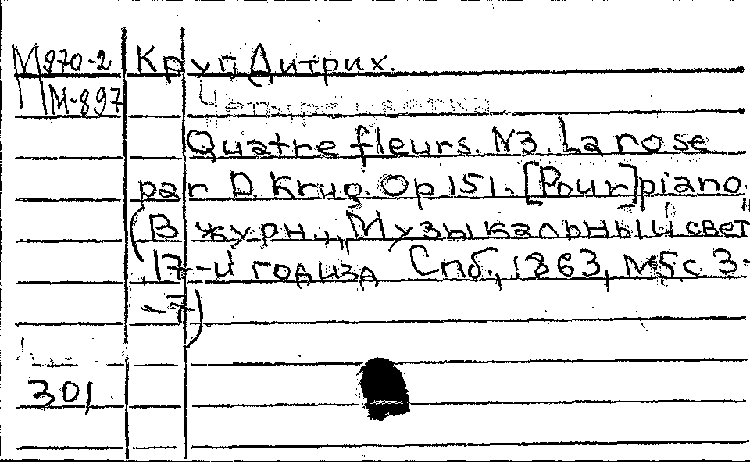 М 970-2 Круг Дитрих.
М-897 Четыре цветка.
Quatre fleurs. N3. La rose
par D. Krug. Op 151. [Pour] piano.
(В журн. „Музыкальный свет"
17-й год изд. Спб., 1863, №5 с 3-
-7)
301